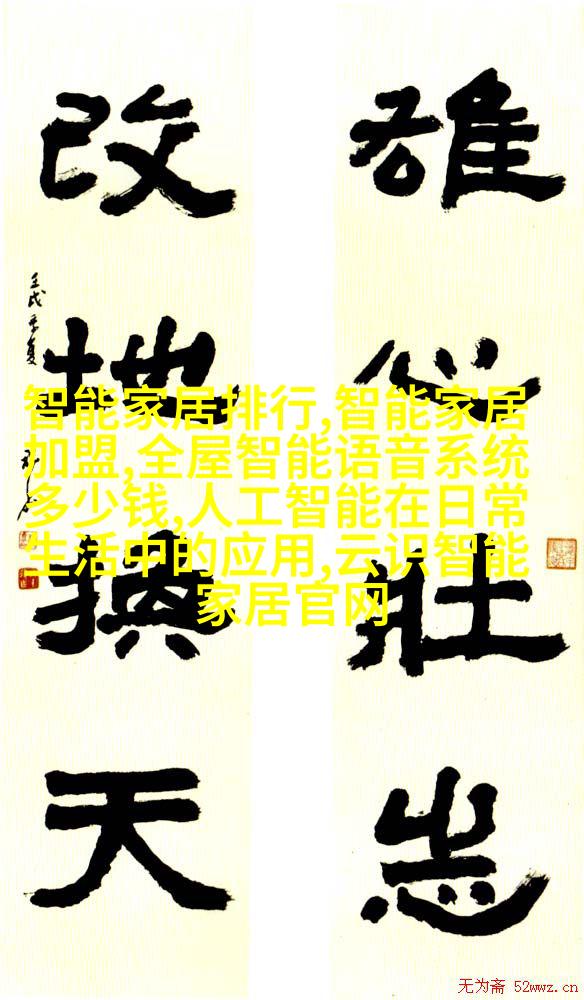 雄心壮志
改地换天
壬戌年夏
智能家居排行,智能家居
加盟,全屋智能语音系统
多少钱,人工智能在日常
生活中的应用,云识智能
家居官网
无为斋 52wwz.cn